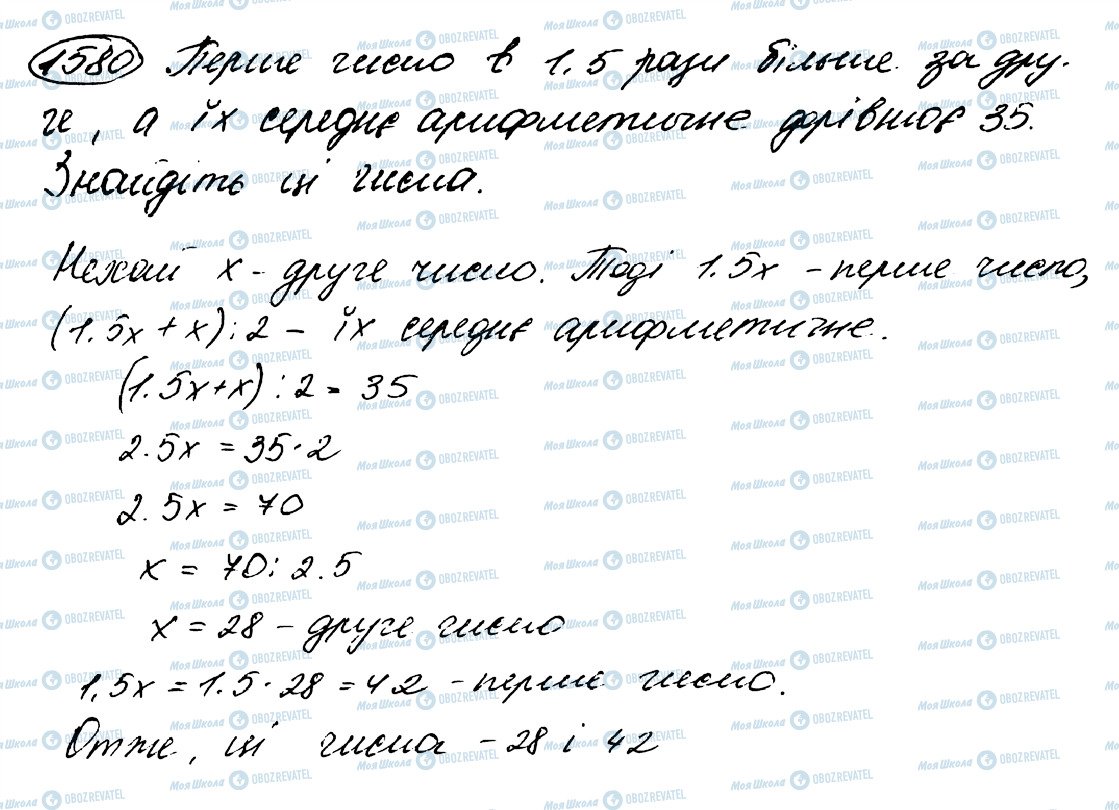 1580 Перше число в 1.5 рази більше за дру-
ге, а їх середнє арифметичне дорівнює 35.
Знайдіть ці числа.
Нехай x - друге число. Тоді 1.5x - перше число,
(1.5x + x) : 2 - їх середнє арифметичне.
(1.5x+x) : 2 = 35
2.5x = 35·2
2.5x = 70
x = 70 : 2.5
x = 28 - друге число
1,5x = 1.5·28 = 42 - перше число.
Отже, ці числа - 28 і 42
МояШкола OBOZREVATEL